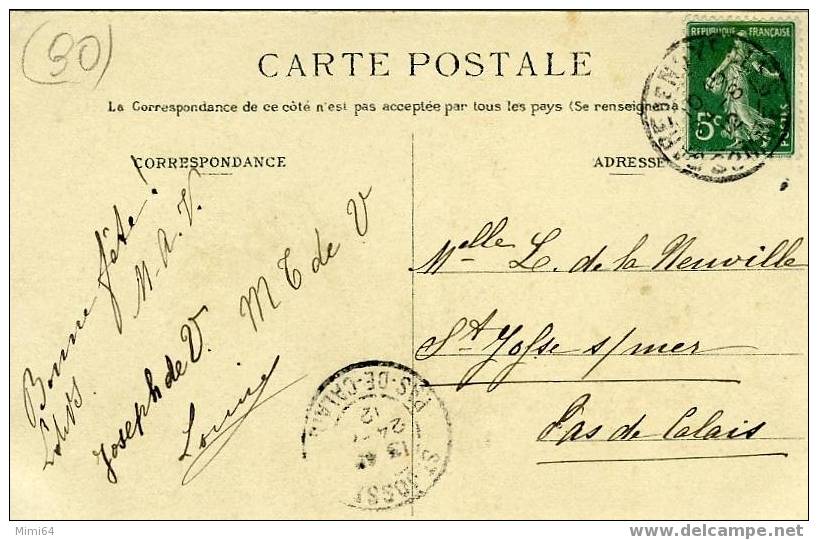 (30)
CARTE POSTALE
La Correspondance de ce côté n'est pas acceptée par tous les pays (Se renseigner à
REPUBLIQUE FRANÇAISE
5c
POSTES
CORRESPONDANCE
ADRESSE
Bonne fête!
M. A. V.
Joseph de V.
M T de V
Louise
Melle L. de la Neuville
St Josse s/mer
Pas de Calais
PAS-DE-CALAIS
24
12
ST JOSSE
Mimi64
www.delcampe.net